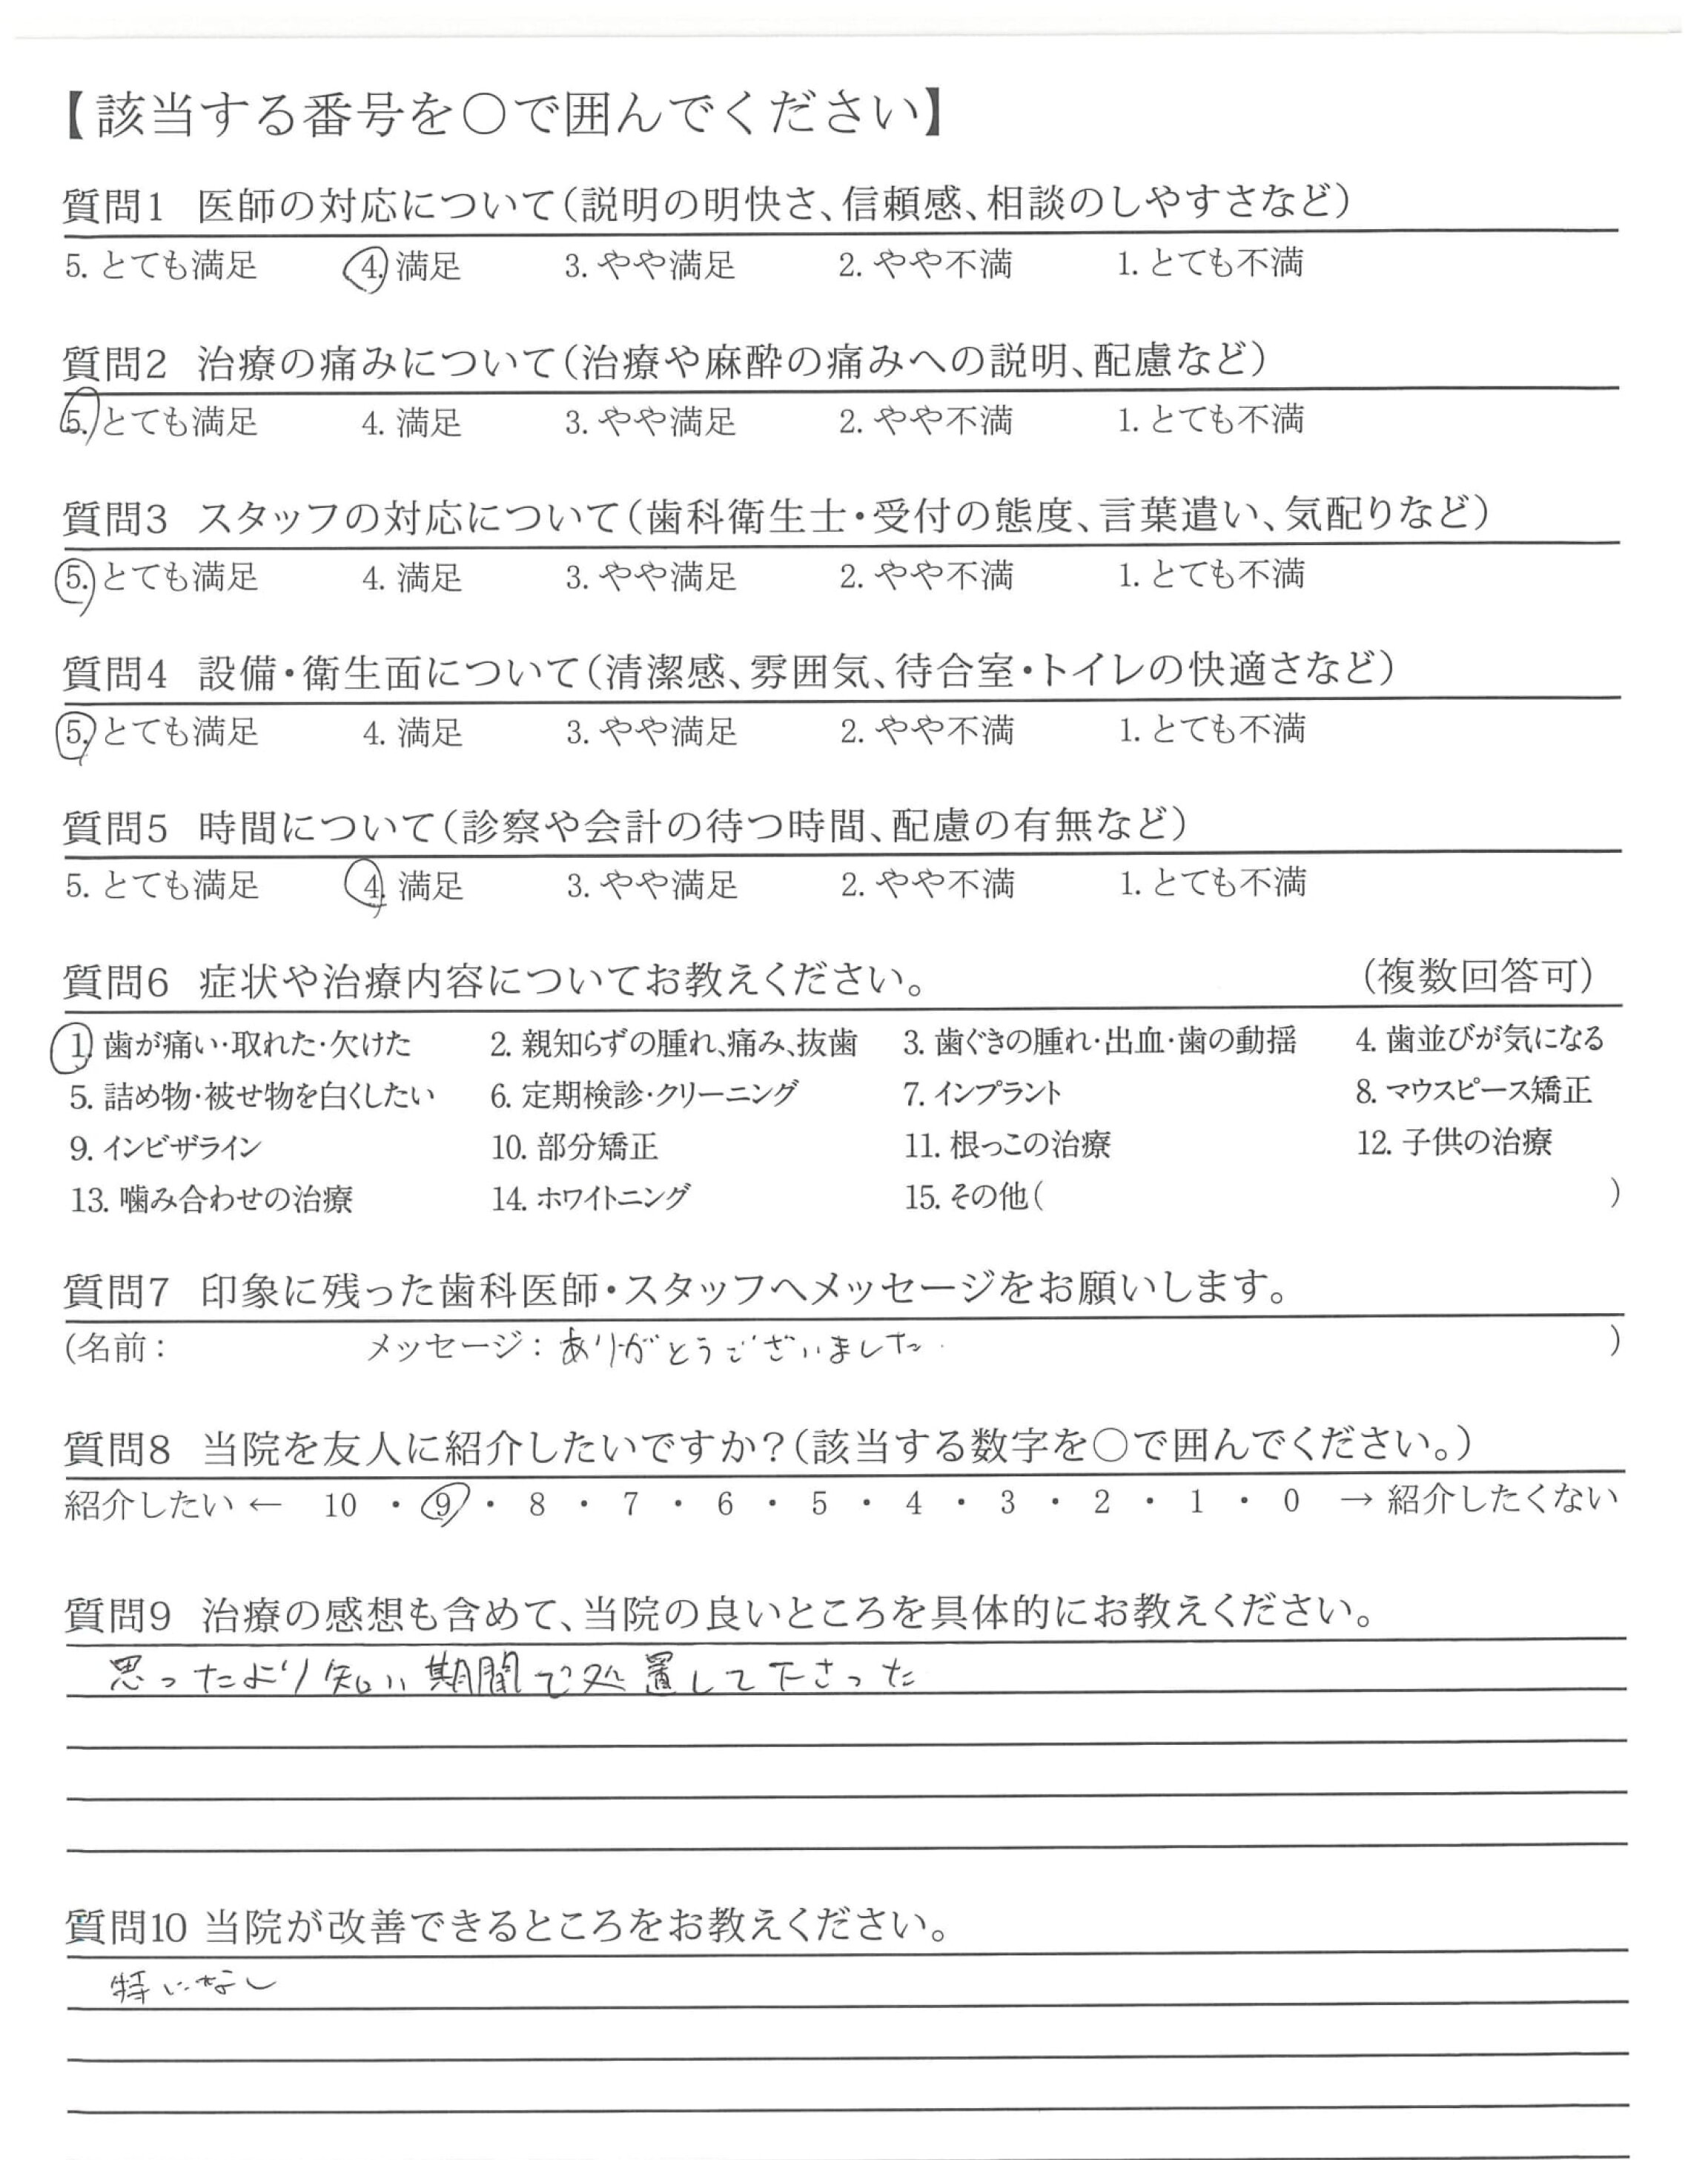 【該当する番号を○で囲んでください】
質問1 医師の対応について(説明の明快さ、信頼感、相談のしやすさなど)
5. とても満足 4. 満足 3. やや満足 2. やや不満 1. とても不満
質問2 治療の痛みについて(治療や麻酔の痛みへの説明、配慮など)
5. とても満足 4. 満足 3. やや満足 2. やや不満 1. とても不満
質問3 スタッフの対応について(歯科衛生士・受付の態度、言葉遣い、気配りなど)
5. とても満足 4. 満足 3. やや満足 2. やや不満 1. とても不満
質問4 設備・衛生面について(清潔感、雰囲気、待合室・トイレの快適さなど)
5. とても満足 4. 満足 3. やや満足 2. やや不満 1. とても不満
質問5 時間について(診察や会計の待つ時間、配慮の有無など)
5. とても満足 4. 満足 3. やや満足 2. やや不満 1. とても不満
質問6 症状や治療内容についてお教えください。 (複数回答可)
1. 歯が痛い・取れた・欠けた 2. 親知らずの腫れ、痛み、抜歯 3. 歯ぐきの腫れ・出血・歯の動揺 4. 歯並びが気になる
5. 詰め物・被せ物を白くしたい 6. 定期検診・クリーニング 7. インプラント 8. マウスピース矯正
9. インビザライン 10. 部分矯正 11. 根っこの治療 12. 子供の治療
13. 噛み合わせの治療 14. ホワイトニング 15. その他( )
質問7 印象に残った歯科医師・スタッフへメッセージをお願いします。
(名前: メッセージ: ありがとうございました )
質問8 当院を友人に紹介したいですか?(該当する数字を○で囲んでください。)
紹介したい ← 10 ・ 9 ・ 8 ・ 7 ・ 6 ・ 5 ・ 4 ・ 3 ・ 2 ・ 1 ・ 0 → 紹介したくない
質問9 治療の感想も含めて、当院の良いところを具体的にお教えください。
思ったより短い期間で処置して下さった
質問10 当院が改善できるところをお教えください。
特になし